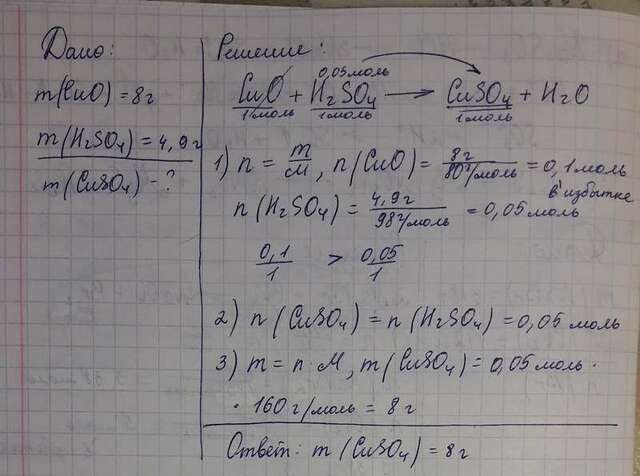 Дано:
m(CuO) = 8г
m(H₂SO₄) = 4,9г
m(CuSO₄) - ?
Решение:
0,05моль
CuO + H₂SO₄ → CuSO₄ + H₂O
1моль 1моль 1моль
1) n = m/M, n(CuO) = 8г/80г/моль = 0,1моль
в избытке
n(H₂SO₄) = 4,9г/98г/моль = 0,05моль
0,1/1 > 0,05/1
2) n(CuSO₄) = n(H₂SO₄) = 0,05 моль
3) m = n·M, m(CuSO₄) = 0,05 моль ·
· 160 г/моль = 8 г
Ответ: m(CuSO₄) = 8г